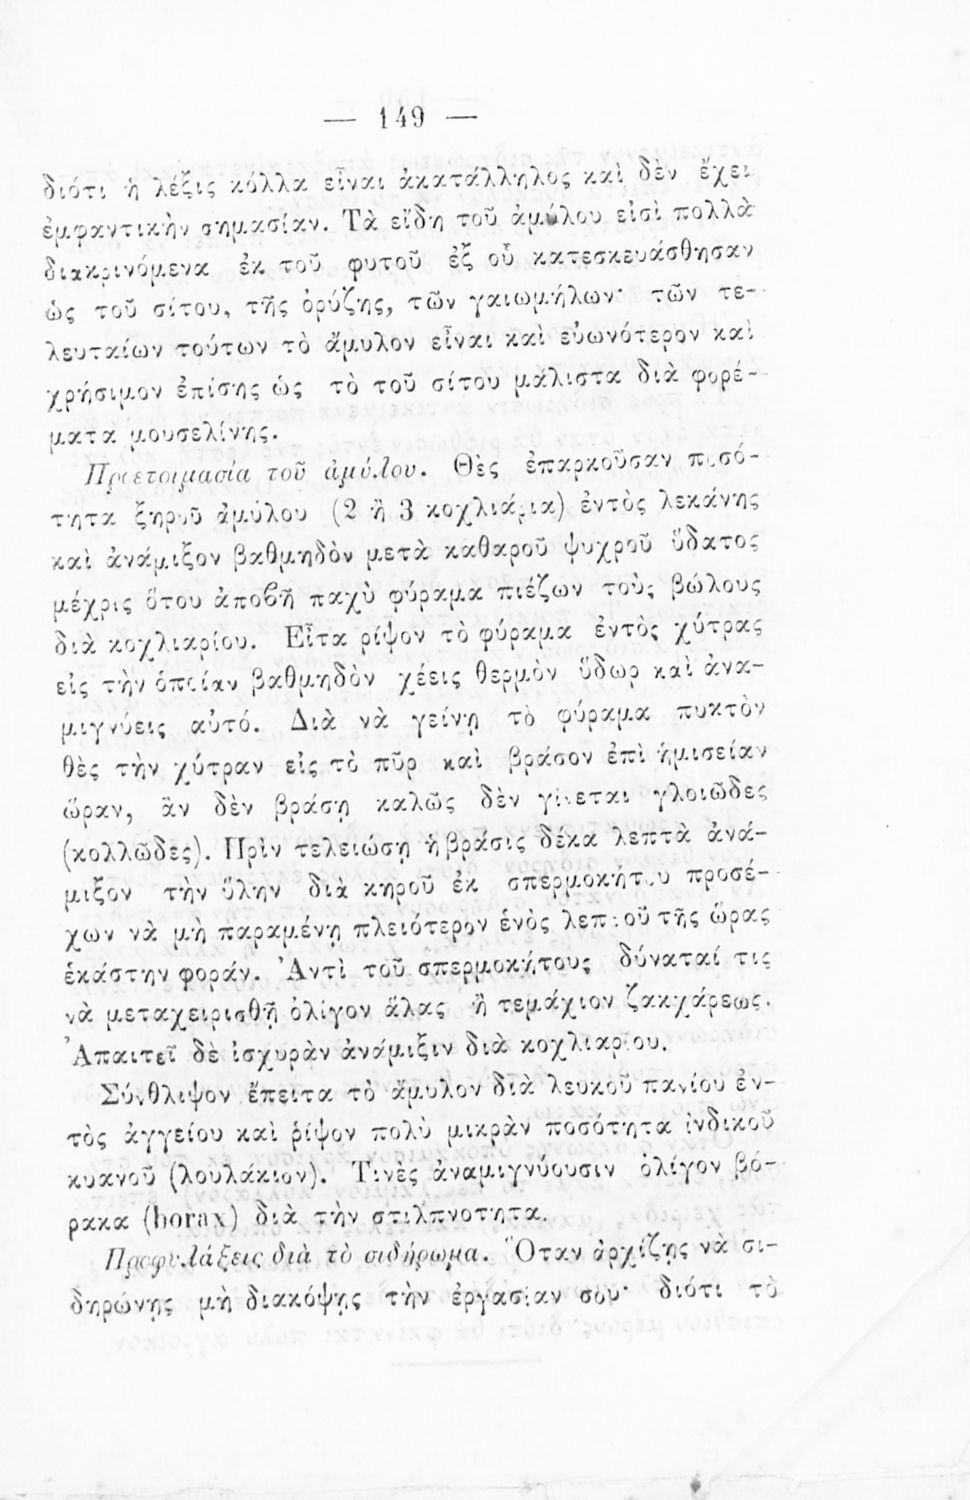 — 149 —
διότι ἡ λέξις κόλλα εἶναι ἀκατάλληλος καὶ δὲν ἔχει
ἐμφαντικὴν σημασίαν. Τὰ εἴδη τοῦ ἀμύλου εἰσὶ πολλὰ
διακρινόμενα ἐκ τοῦ φυτοῦ ἐξ οὗ κατεσκευάσθησαν
ὡς τοῦ σίτου, τῆς ὀρύζης, τῶν γαιωμήλων· τῶν τε-
λευταίων τούτων τὸ ἄμυλον εἶναι καὶ εὐωνότερον καὶ
χρήσιμον ἐπίσης ὡς τὸ τοῦ σίτου μάλιστα διὰ φορέ-
ματα μουσελίνης.
Προετοιμασία τοῦ ἀμύλου. Θὲς ἐπαρκοῦσαν ποσό-
τητα ξηροῦ ἀμύλου (2 ἢ 3 κοχλιάρια) ἐντὸς λεκάνης
καὶ ἀνάμιξον βαθμηδὸν μετὰ καθαροῦ ψυχροῦ ὕδατος
μέχρις ὅτου ἀποβῇ παχὺ φύραμα πιέζων τοὺς βώλους
διὰ κοχλιαρίου. Εἶτα ρίψον τὸ φύραμα ἐντὸς χύτρας
εἰς τὴν ὁποίαν βαθμηδὸν χέεις θερμὸν ὕδωρ καὶ ἀνα-
μιγνύεις αὐτό. Διὰ νὰ γείνῃ τὸ φύραμα πυκτὸν
θὲς τὴν χύτραν εἰς τὸ πῦρ καὶ βράσον ἐπὶ ἡμισείαν
ὥραν, ἂν δὲν βράσῃ καλῶς δὲν γίνεται γλοιῶδες
(κολλῶδες). Πρὶν τελειώσῃ ἡ βράσις δέκα λεπτὰ ἀνά-
μιξον τὴν ὕλην διὰ κηροῦ ἐκ σπερμοκήτου προσέ-
χων νὰ μὴ παραμένῃ πλειότερον ἑνὸς λεπτοῦ τῆς ὥρας
ἑκάστην φοράν. Ἀντὶ τοῦ σπερμοκήτους δύναταί τις
νὰ μεταχειρισθῇ ὀλίγον ἅλας ἢ τεμάχιον ζακχάρεως.
Ἀπαιτεῖ δὲ ἰσχυρὰν ἀνάμιξιν διὰ κοχλιαρίου.
Σύνθλιψον ἔπειτα τὸ ἄμυλον διὰ λευκοῦ πανίου ἐν-
τὸς ἀγγείου καὶ ῥίψον πολὺ μικρὰν ποσότητα ἰνδικοῦ
κυανοῦ (λουλάκιον). Τινὲς ἀναμιγνύουσιν ὀλίγον βό-
ρακα (borax) διὰ τὴν στιλπνοτητα.
Προφυλάξεις διὰ τὸ σιδήρωμα. Ὅταν ἀρχίζῃς νὰ σι-
δηρώνῃς μὴ διακόψῃς τὴν ἐργασίαν σου· διότι τὸ